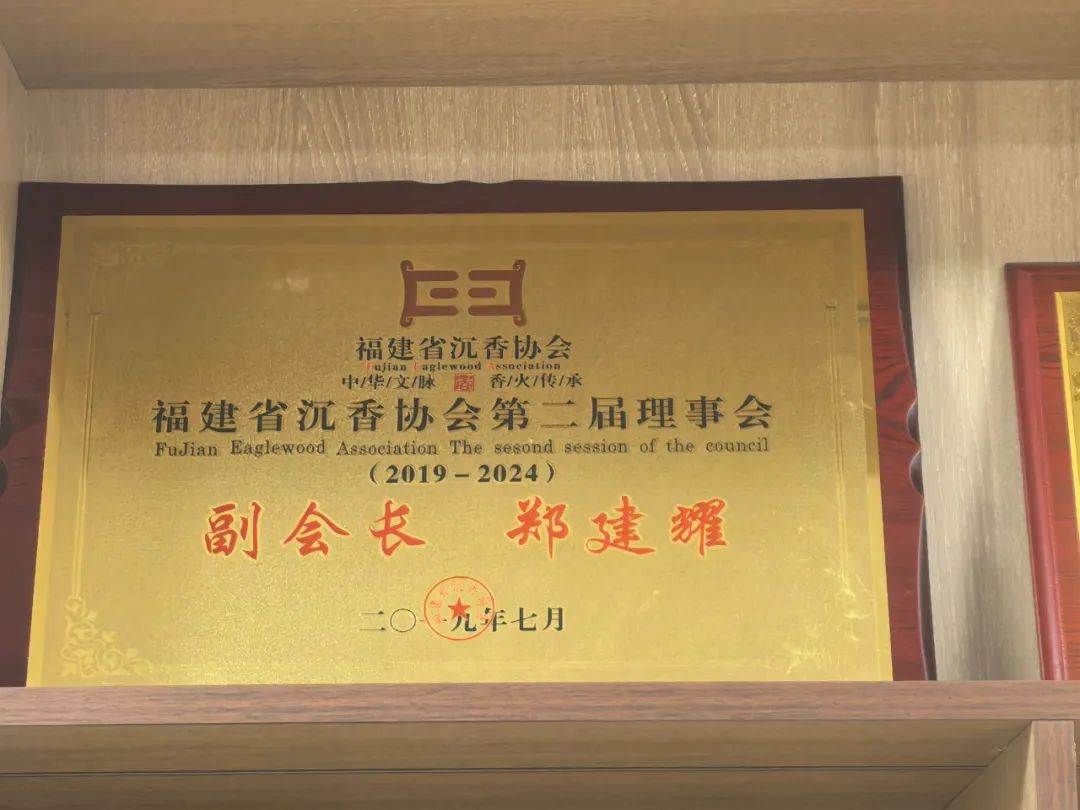 福建省沉香协会
Fujian Eaglewood Association
中/华/文/脉 香/火/传/承
福建省沉香协会第二届理事会
FuJian Eaglewood Association The sesond session of the council
（2019－2024）
副会长 郑建耀
二〇一九年七月